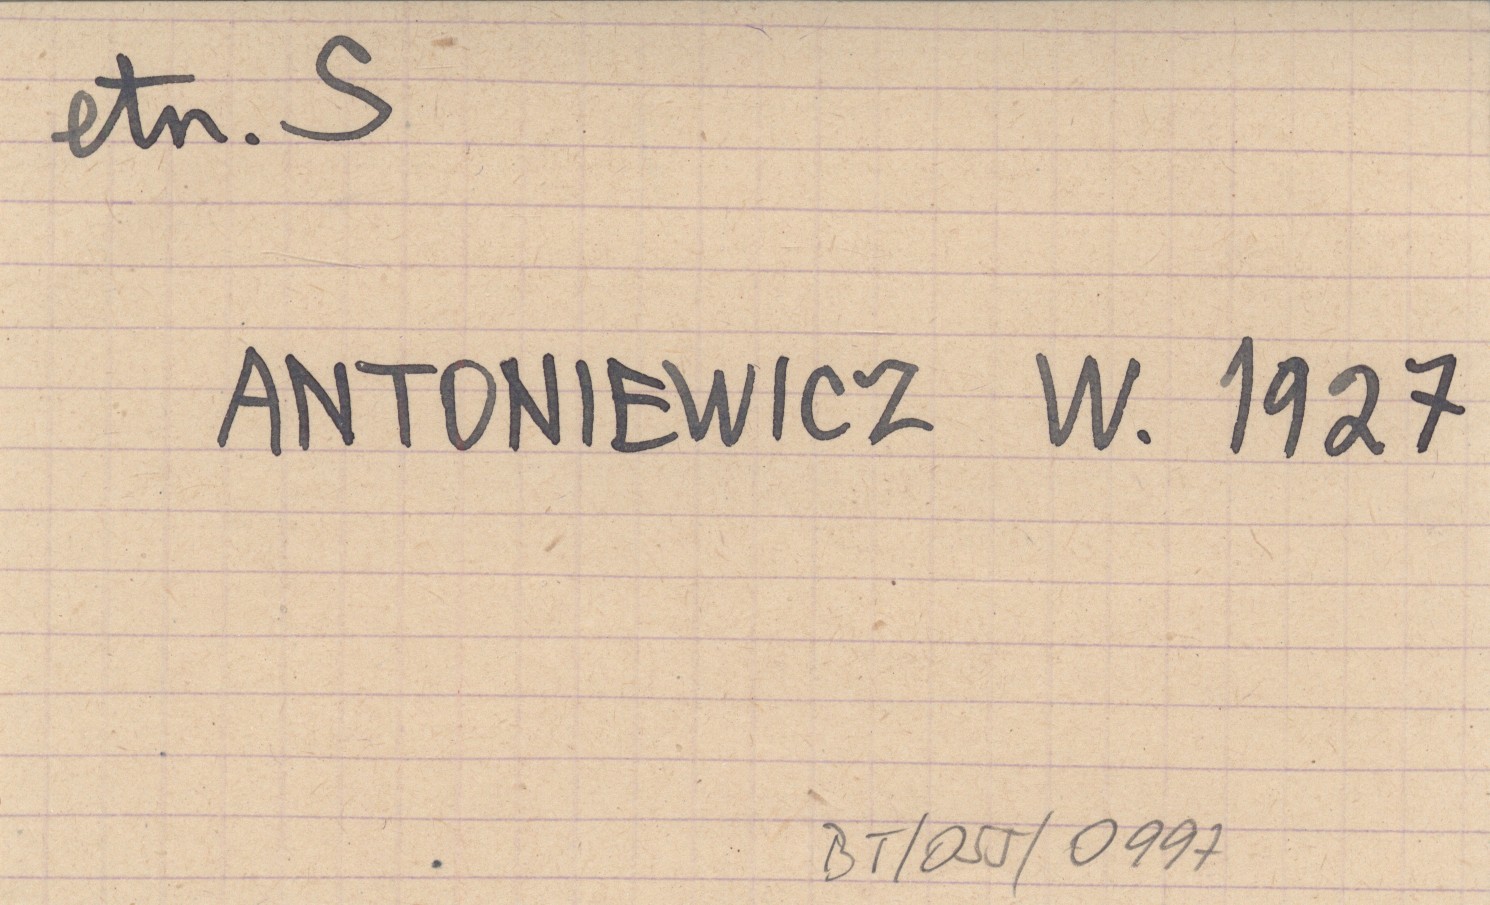 etn. S
ANTONIEWICZ W. 1927
BT/OSJ/0997